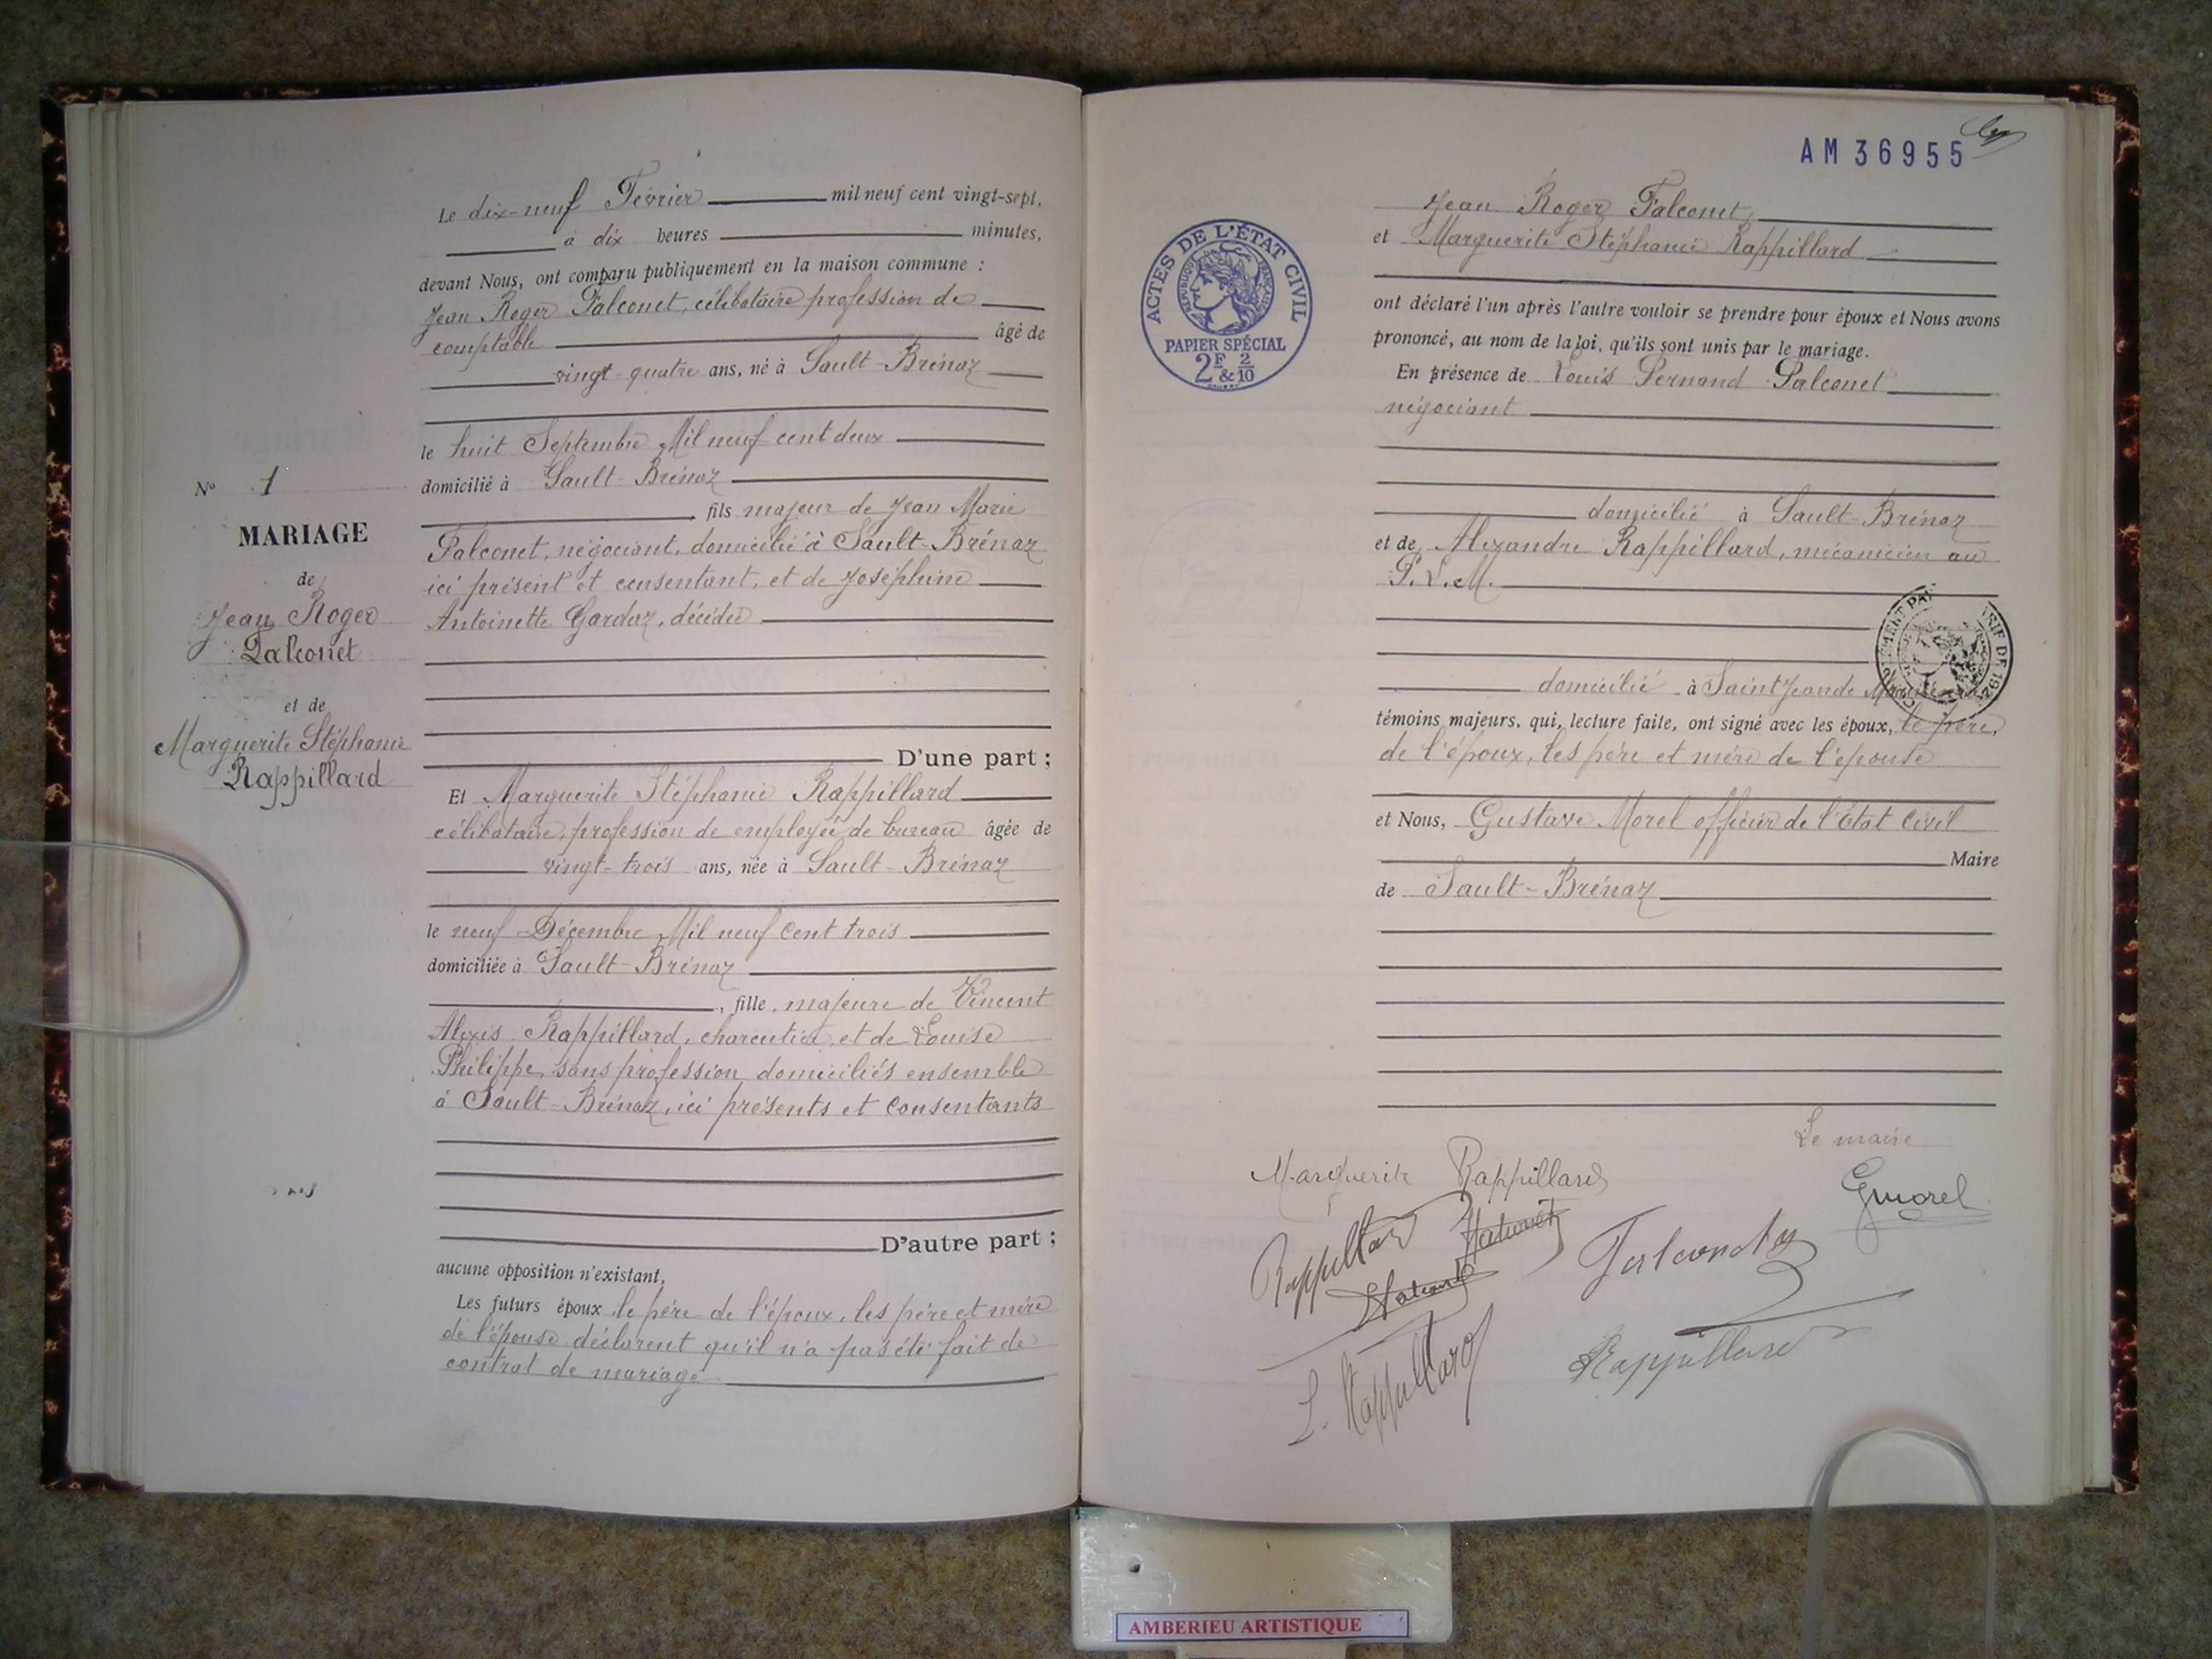 Le dix-neuf Février mil neuf cent vingt-sept,
à dix heures minutes,
devant Nous, ont comparu publiquement en la maison commune :
Jean Roger Falconet, célibataire profession de
comptable âgé de
vingt-quatre ans, né à Sault-Brénaz
le huit Septembre Mil neuf cent deux
domicilié à Sault-Brénaz
fils majeur de Jean Marie
Falconet, négociant, domicilié à Sault-Brénaz
ici présent et consentant, et de Joséphine
Antoinette Gardaz, décédée
D'une part ;
Et Marguerite Stéphanie Rappillard
célibataire, profession de employée de bureau âgée de
vingt-trois ans, née à Sault-Brénaz
le neuf Décembre Mil neuf cent trois
domiciliée à Sault-Brénaz
, fille majeure de Vincent
Alexis Rappillard, charcutier, et de Louise
Philippe, sans profession domiciliés ensemble
à Sault-Brénaz, ici présents et consentants
D'autre part ;
aucune opposition n'existant,
Les futurs époux le père de l'époux, les père et mère
de l'épouse déclarent qu'il n'a pas été fait de
contrat de mariage
N° 1
MARIAGE
de
Jean Roger
Falconet
et de
Marguerite Stéphanie
Rappillard
AM 36955
ACTES DE L'ÉTAT CIVIL
RÉPUBLIQUE FRANÇAISE
PAPIER SPÉCIAL
2F & 2/10
Jean Roger Falconet,
et Marguerite Stéphanie Rappillard
ont déclaré l'un après l'autre vouloir se prendre pour époux et Nous avons
prononcé, au nom de la loi, qu'ils sont unis par le mariage.
En présence de Louis Fernand Falconet
négociant
domicilié à Sault-Brénaz
et de Alexandre Rappillard, mécanicien au
P. L. M.
domicilié à Saint Jean de
témoins majeurs, qui, lecture faite, ont signé avec les époux, le père,
de l'époux, les père et mère de l'épouse
et Nous, Gustave Morel officier de l'État Civil
Maire
de Sault-Brénaz
Le maire
Marguerite Rappillard
GMorel
Rappillard
Falconet
L. Rappillard
Rappillard
AMBERIEU ARTISTIQUE